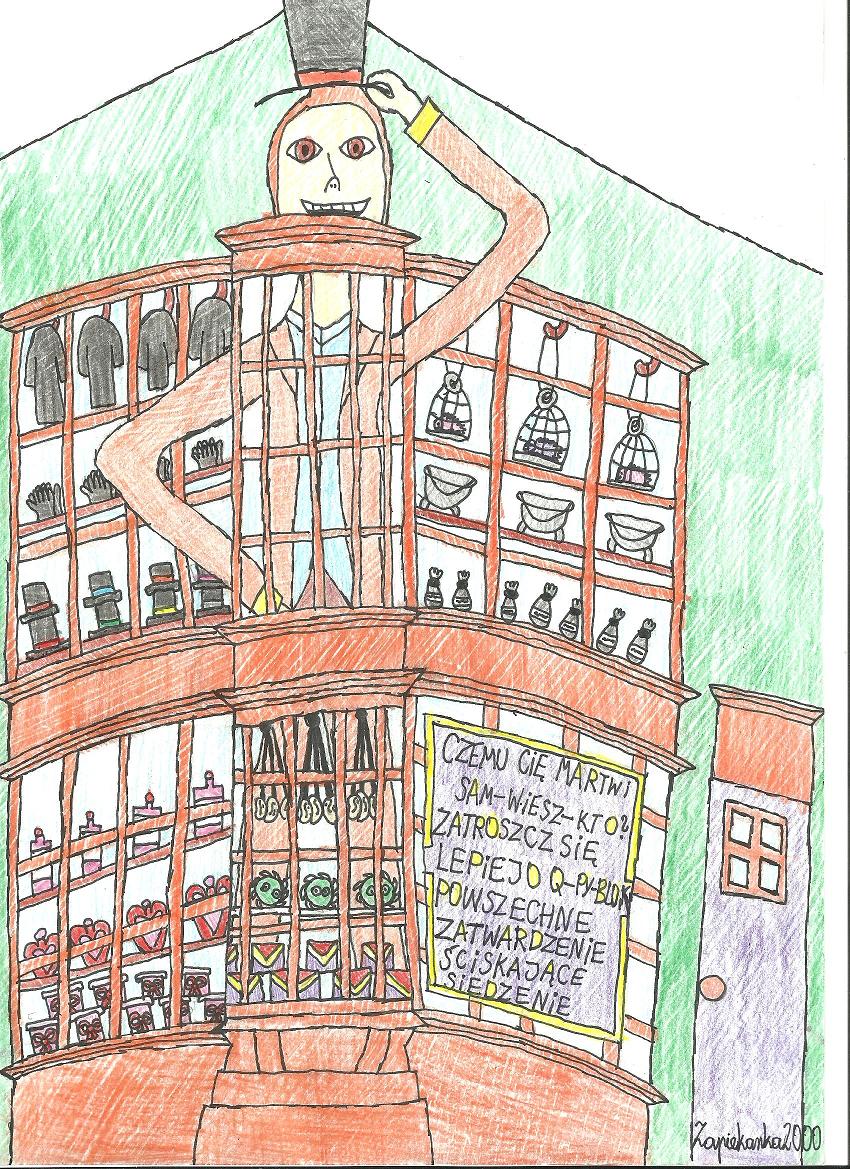 CZEMU CIĘ MARTWI
SAM-WIESZ-KTO?
ZATROSZCZ SIĘ
LEPIEJ O Q-PY-BLOK
POWSZECHNE
ZATWARDZENIE
ŚCISKAJĄCE
SIEDZENIE
Zapiekanka2000